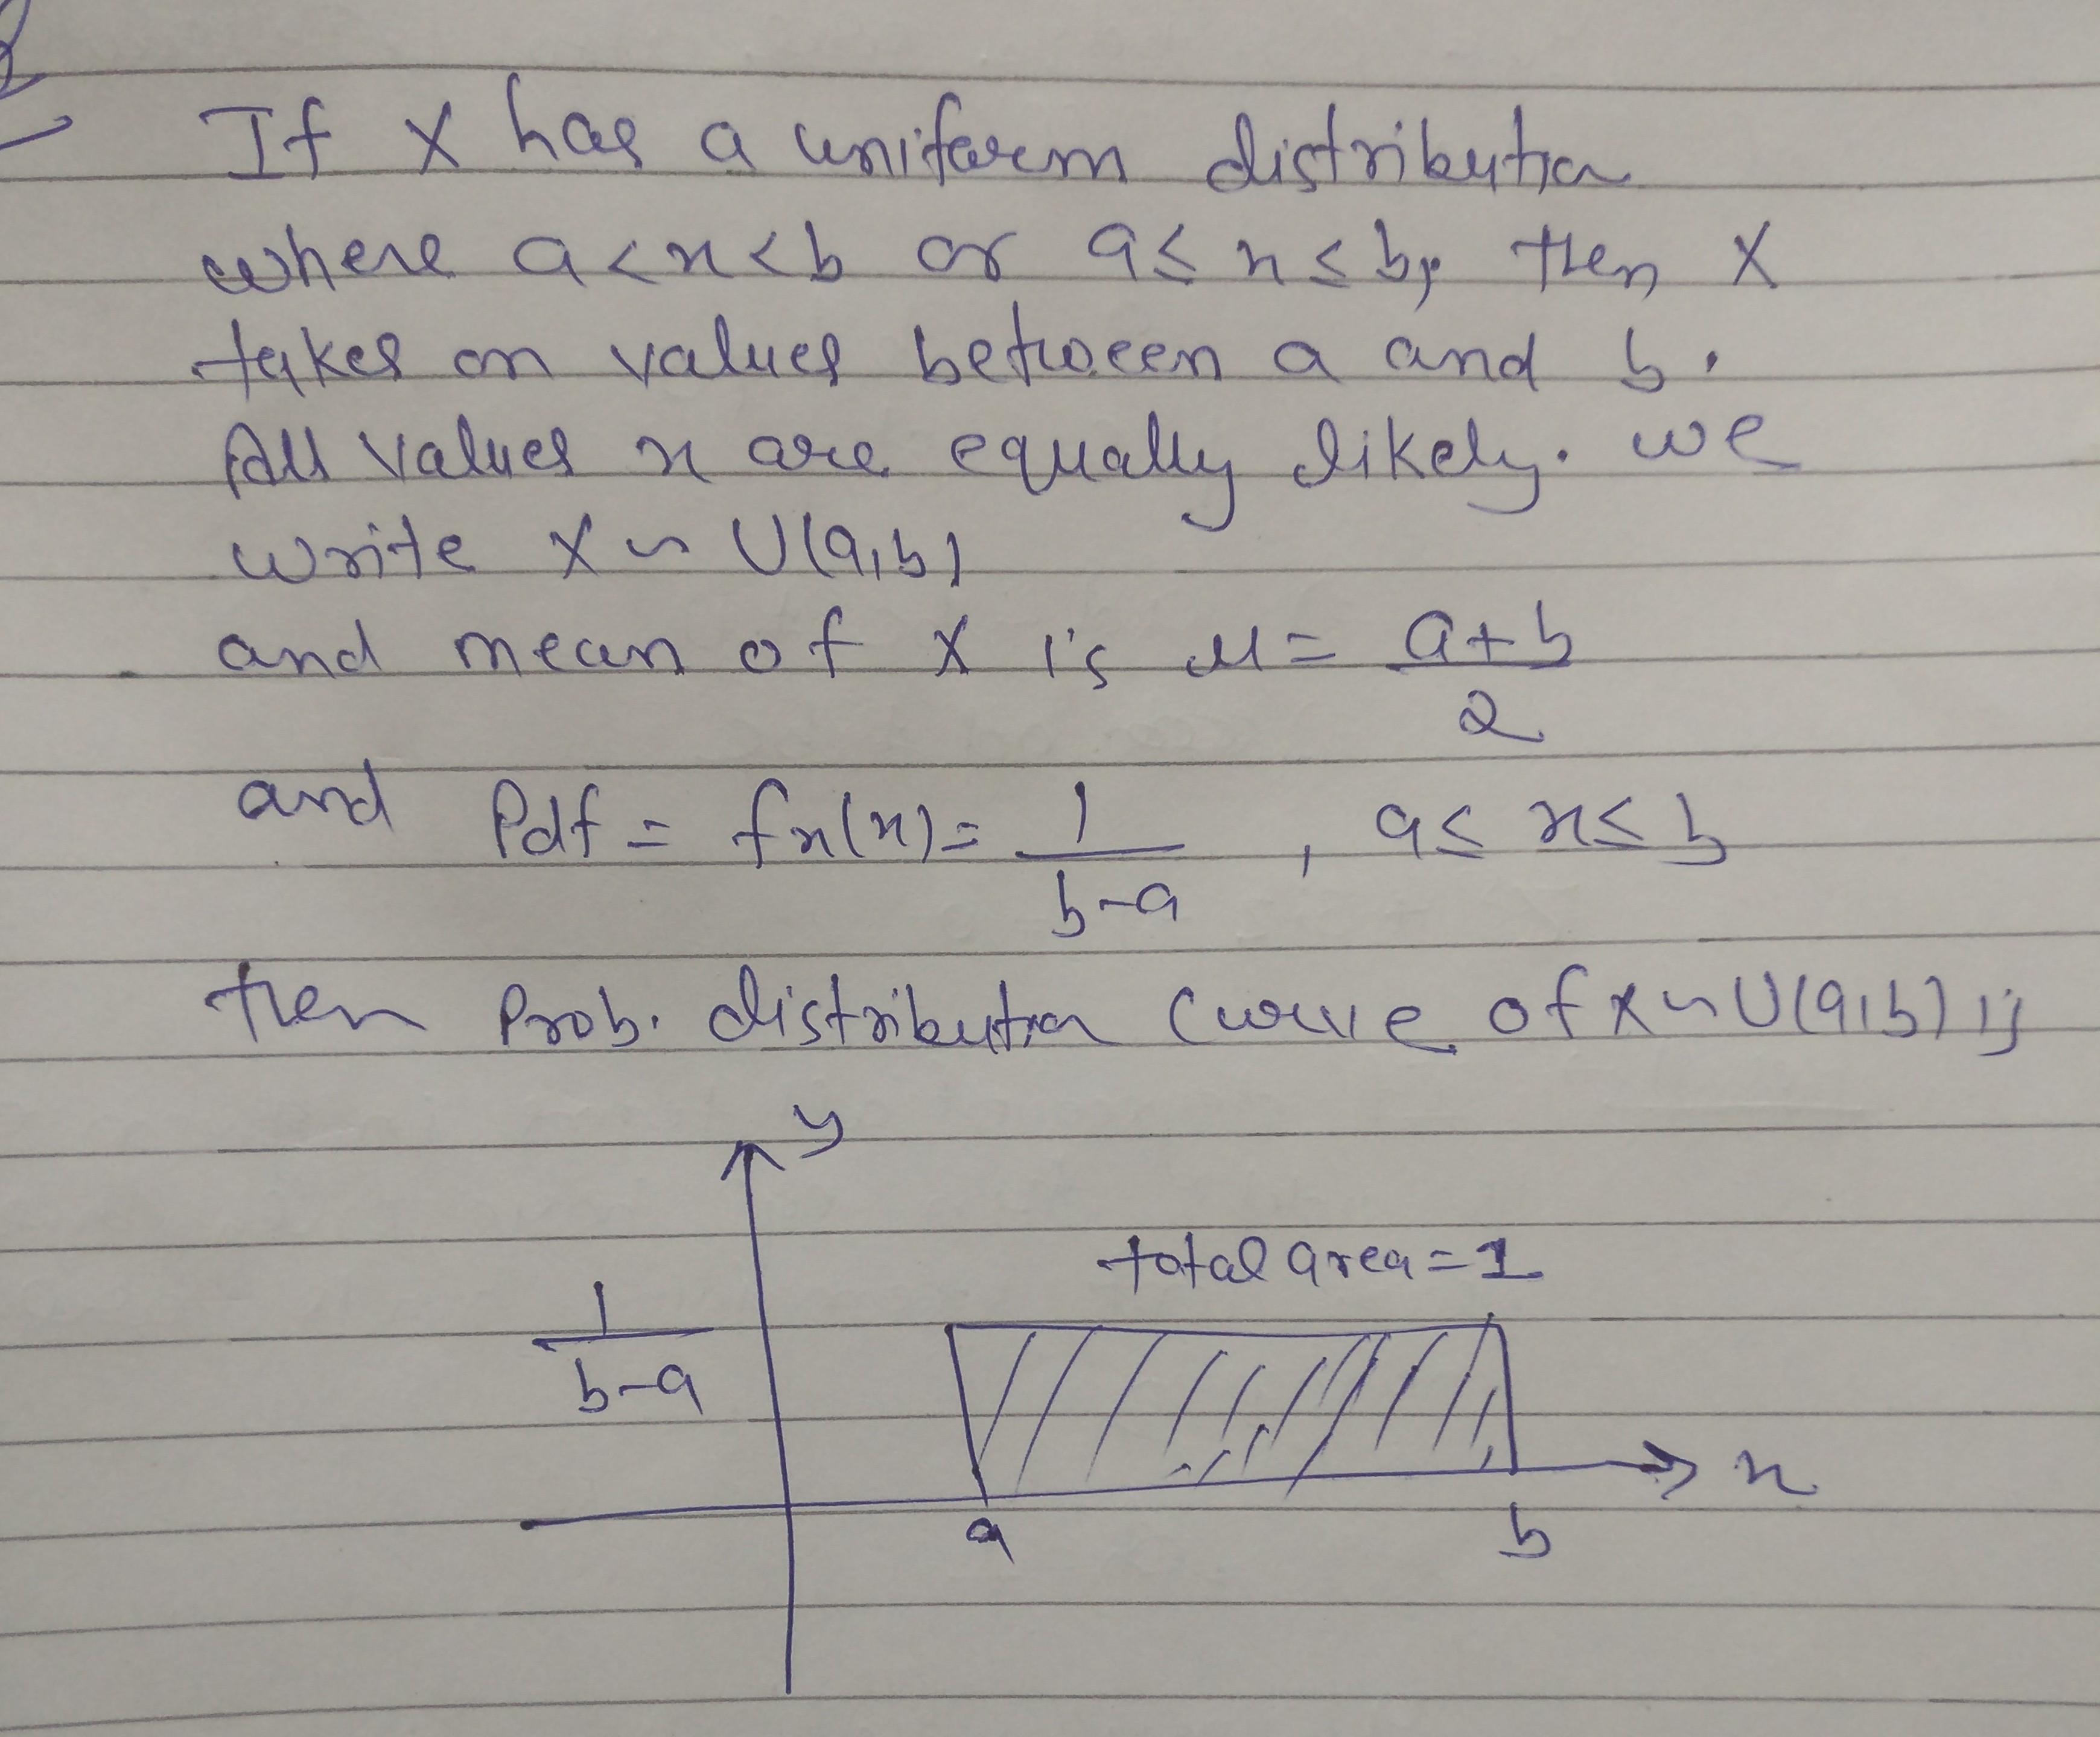 If X has a uniform distribution
where a<x<b or a≤x≤b, then X
takes on values between a and b.
All values x are equally likely. we
write X ~ U(a,b)
and mean of X is μ = a+b
2
and Pdf = fx(x) = 1 , a≤ x≤ b
b-a
then Prob. distribution curve of X~U(a,b) is
y
total area = 1
1
b-a
x
a b